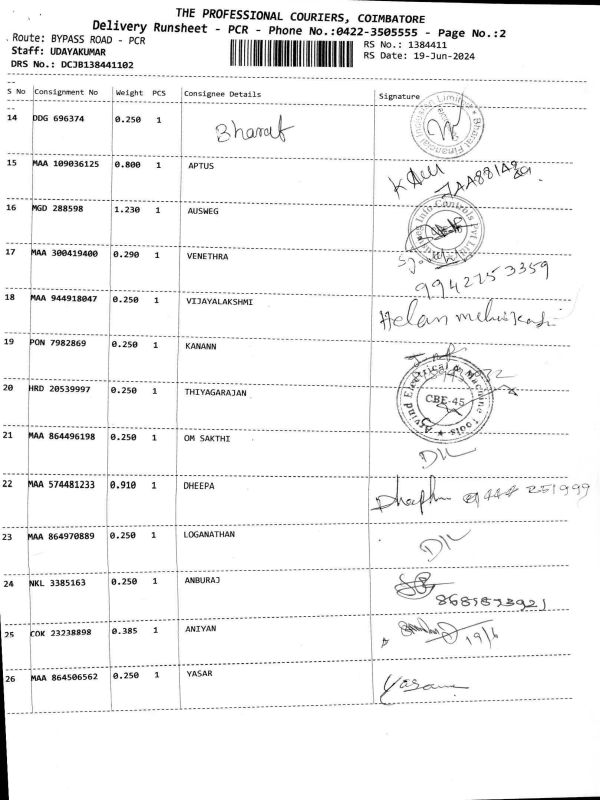 THE PROFESSIONAL COURIERS, COIMBATORE
Delivery Runsheet - PCR - Phone No.:0422-3505555 - Page No.:2
Route: BYPASS ROAD - PCR
RS No.: 1384411
Staff: UDAYAKUMAR
RS Date: 19-Jun-2024
DRS No.: DCJB138441102
S No Consignment No Weight PCS Consignee Details Signature
14 DDG 696374 0.250 1 Bharat
15 MAA 109036125 0.800 1 APTUS
16 MGD 288598 1.230 1 AUSWEG
17 MAA 300419400 0.290 1 VENETHRA 9942253359
18 MAA 944918047 0.250 1 VIJAYALAKSHMI Helan
19 PON 7982869 0.250 1 KANANN
20 HRD 20539997 0.250 1 THIYAGARAJAN
Arvind Electrical & Machine Tools
CBE-45
21 MAA 864496198 0.250 1 OM SAKTHI
22 MAA 574481233 0.910 1 DHEEPA
23 MAA 864970889 0.250 1 LOGANATHAN
24 NKL 3385163 0.250 1 ANBURAJ
25 COK 23238898 0.385 1 ANIYAN 19/6
26 MAA 864506562 0.250 1 YASAR